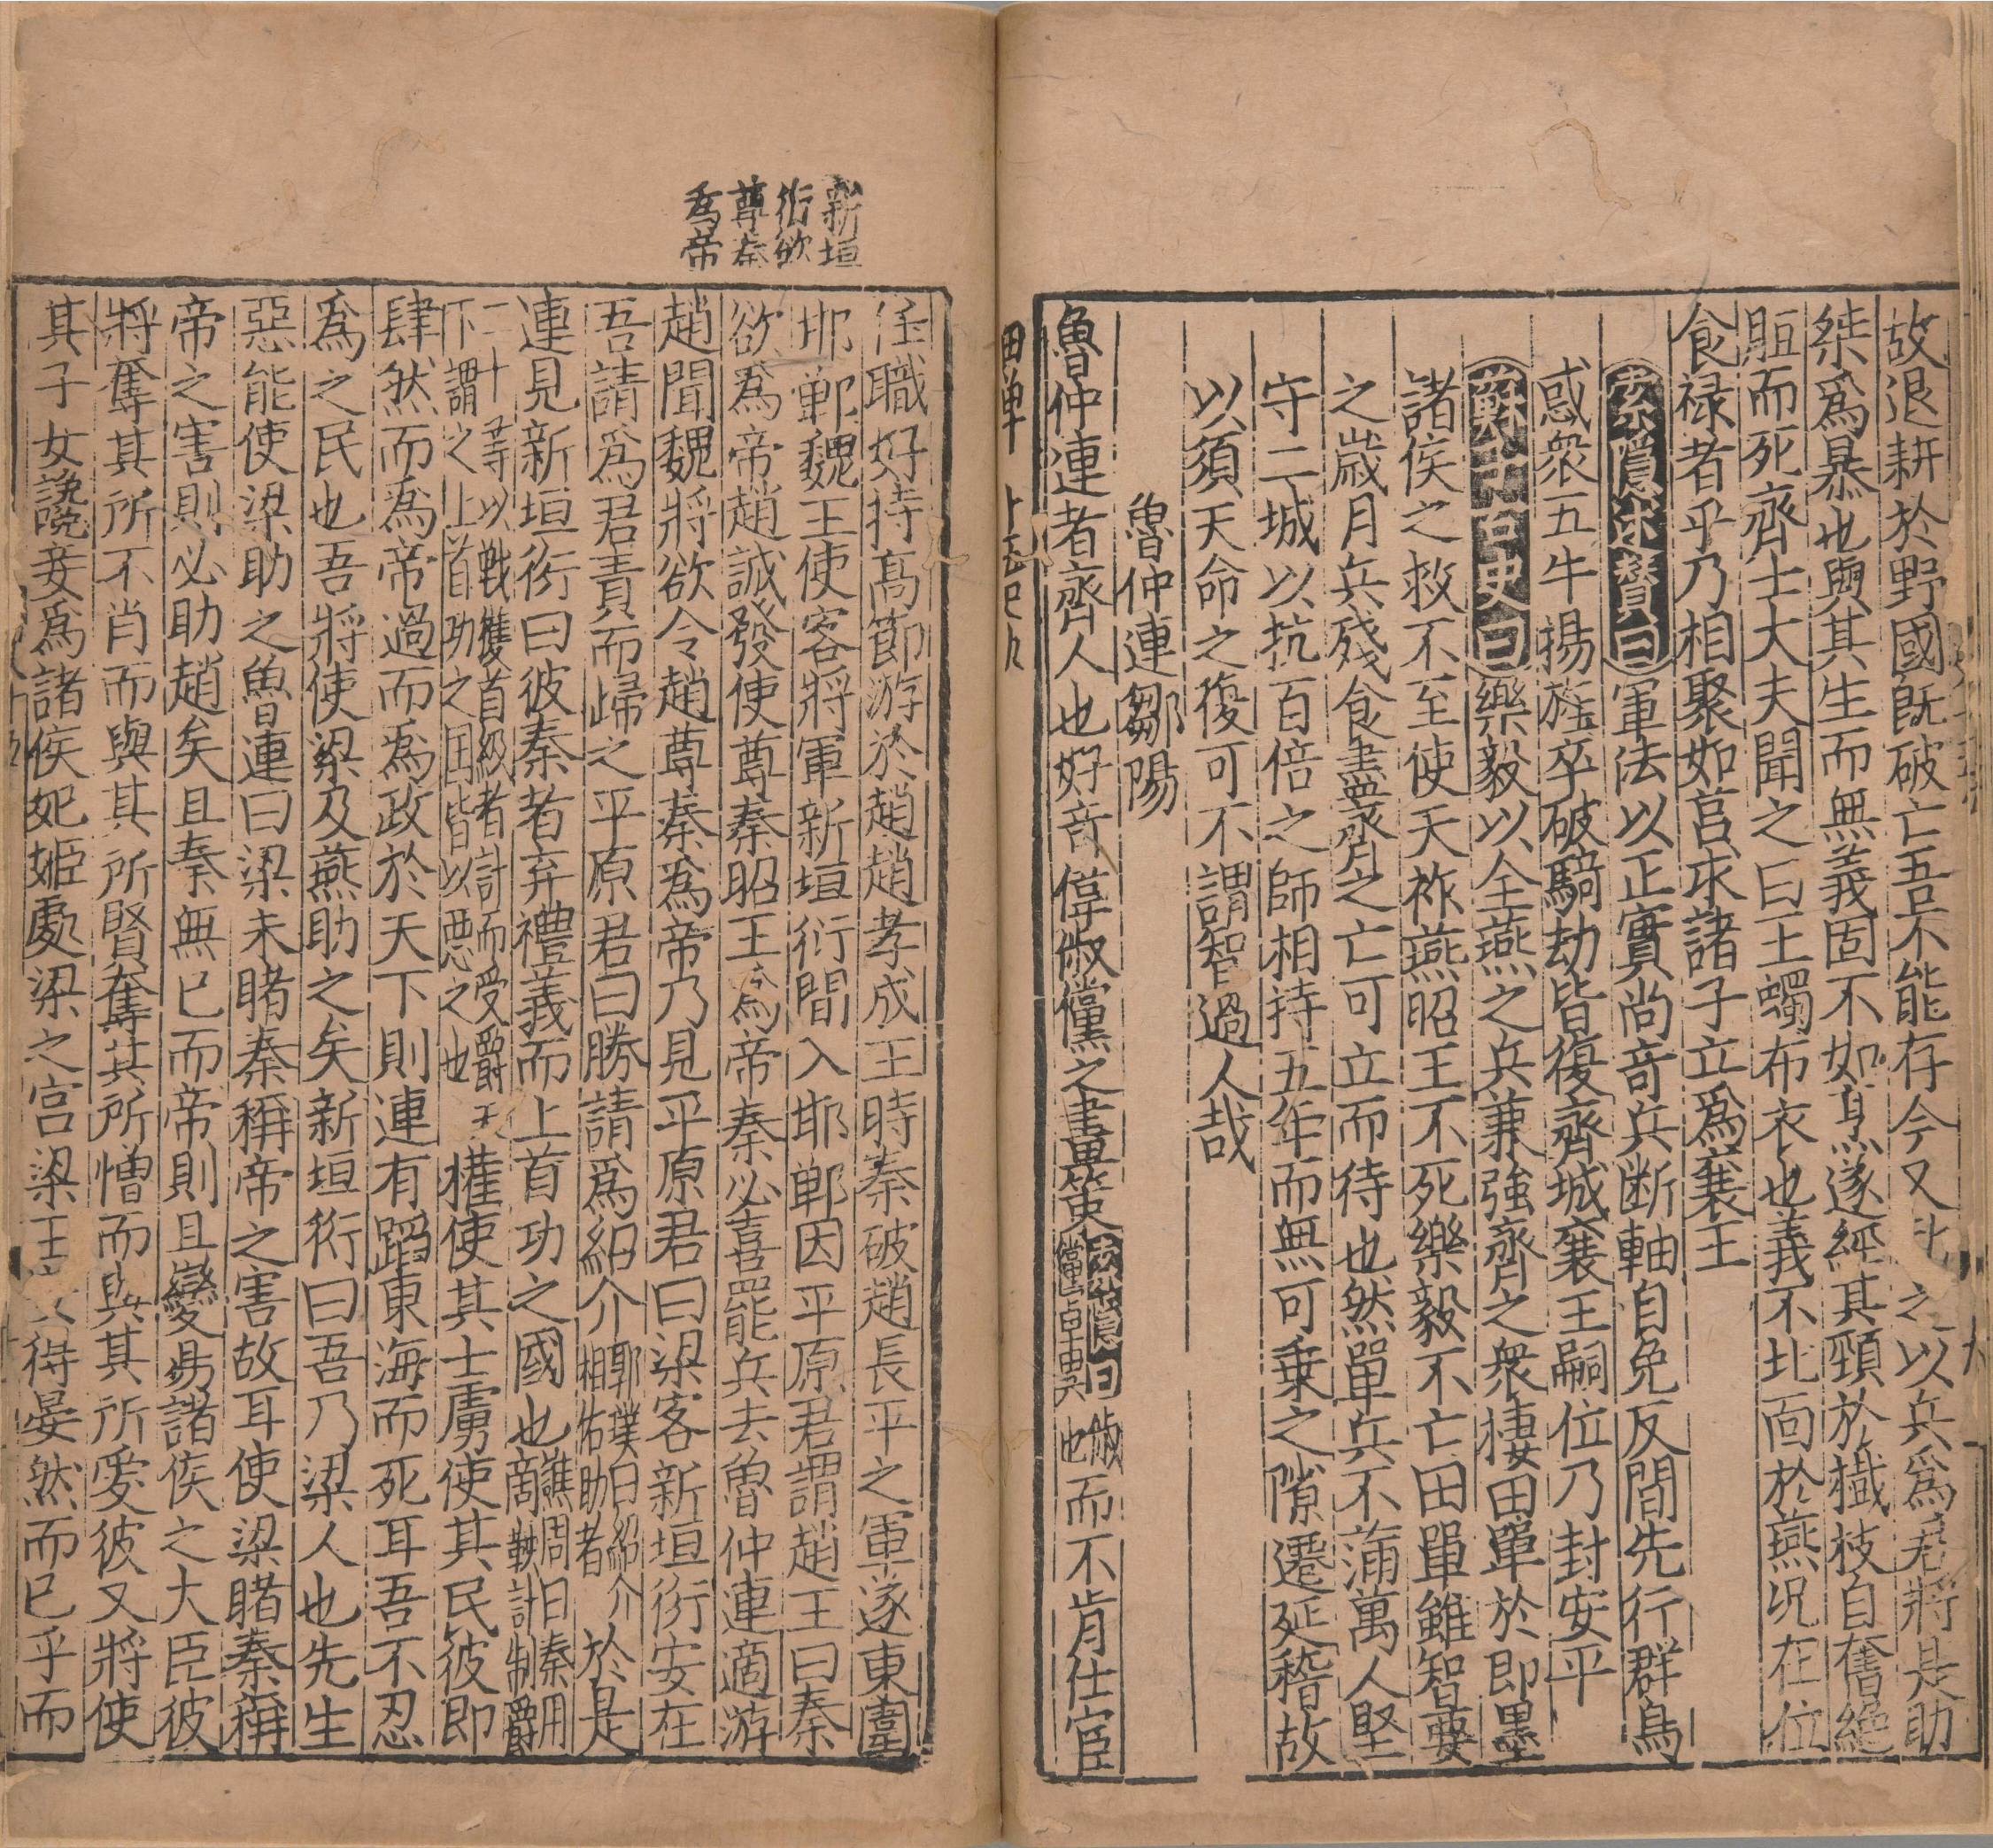 故退耕於野國既破亡吾不能存今又之以兵爲君將是助
桀爲暴也與其生而無義固不如烹遂經其頸於樹枝自奮絕
脰而死齊士大夫聞之曰王蠋布衣也義不北面於燕况在位
食禄者乎乃相聚如莒求諸子立爲襄王
索隱述贊曰軍法以正實尚竒兵断軸自免反間先行群鳥
惑衆五牛揚旌卒破騎劫皆復齊城襄王嗣位乃封安平
曰史曰樂毅以全燕之兵兼強齊之衆棲田單於即墨
諸侯之救不至使天祚燕昭王不死樂毅不亡田單雖智
之歲月兵殘食盡齊之亡可立而待也然單兵不蒲萬人堅
守二城以抗百倍之師相持五年而無可乗之隙遷延稽故
以須天命之復可不謂智過人哉
魯仲連鄒陽
魯仲連者齊人也好竒偉俶儻之畫策索隱曰俶儻卓異也而不肯仕宦
田單
新垣
衍欲
尊秦
爲帝
任職好持髙節游於趙趙孝成王時秦破趙長平之軍遂東圍
邯鄲魏王使客將軍新垣衍間入邯鄲因平原君謂趙王曰秦
欲爲帝趙誠發使尊秦昭王爲帝秦必喜罷兵去魯仲連適游
趙聞魏將欲令趙尊秦爲帝乃見平原君曰梁客新垣衍安在
吾請爲君責而歸之平原君曰勝請爲紹介郭璞曰紹介相佑助者於是
連見新垣衍曰彼秦者弃禮義而上首功之國也譙周曰秦用商鞅計制爵
二十等以戰獲首級者計而受爵天下謂之上首功之囯皆以惡之也權使其士虜使其民彼即
肆然而爲帝過而爲政於天下則連有蹈東海而死耳吾不忍
爲之民也吾將使梁及燕助之矣新垣衍曰吾乃梁人也先生
惡能使梁助之魯連曰梁未睹秦稱帝之害故耳使梁睹秦稱
帝之害則必助趙矣且秦無已而帝則且變易諸侯之大臣彼
將奪其所不肖而與其所賢奪其所憎而與其所愛彼又將使
其子女讒妾爲諸侯妃姬處梁之宮梁王得晏然而已乎而